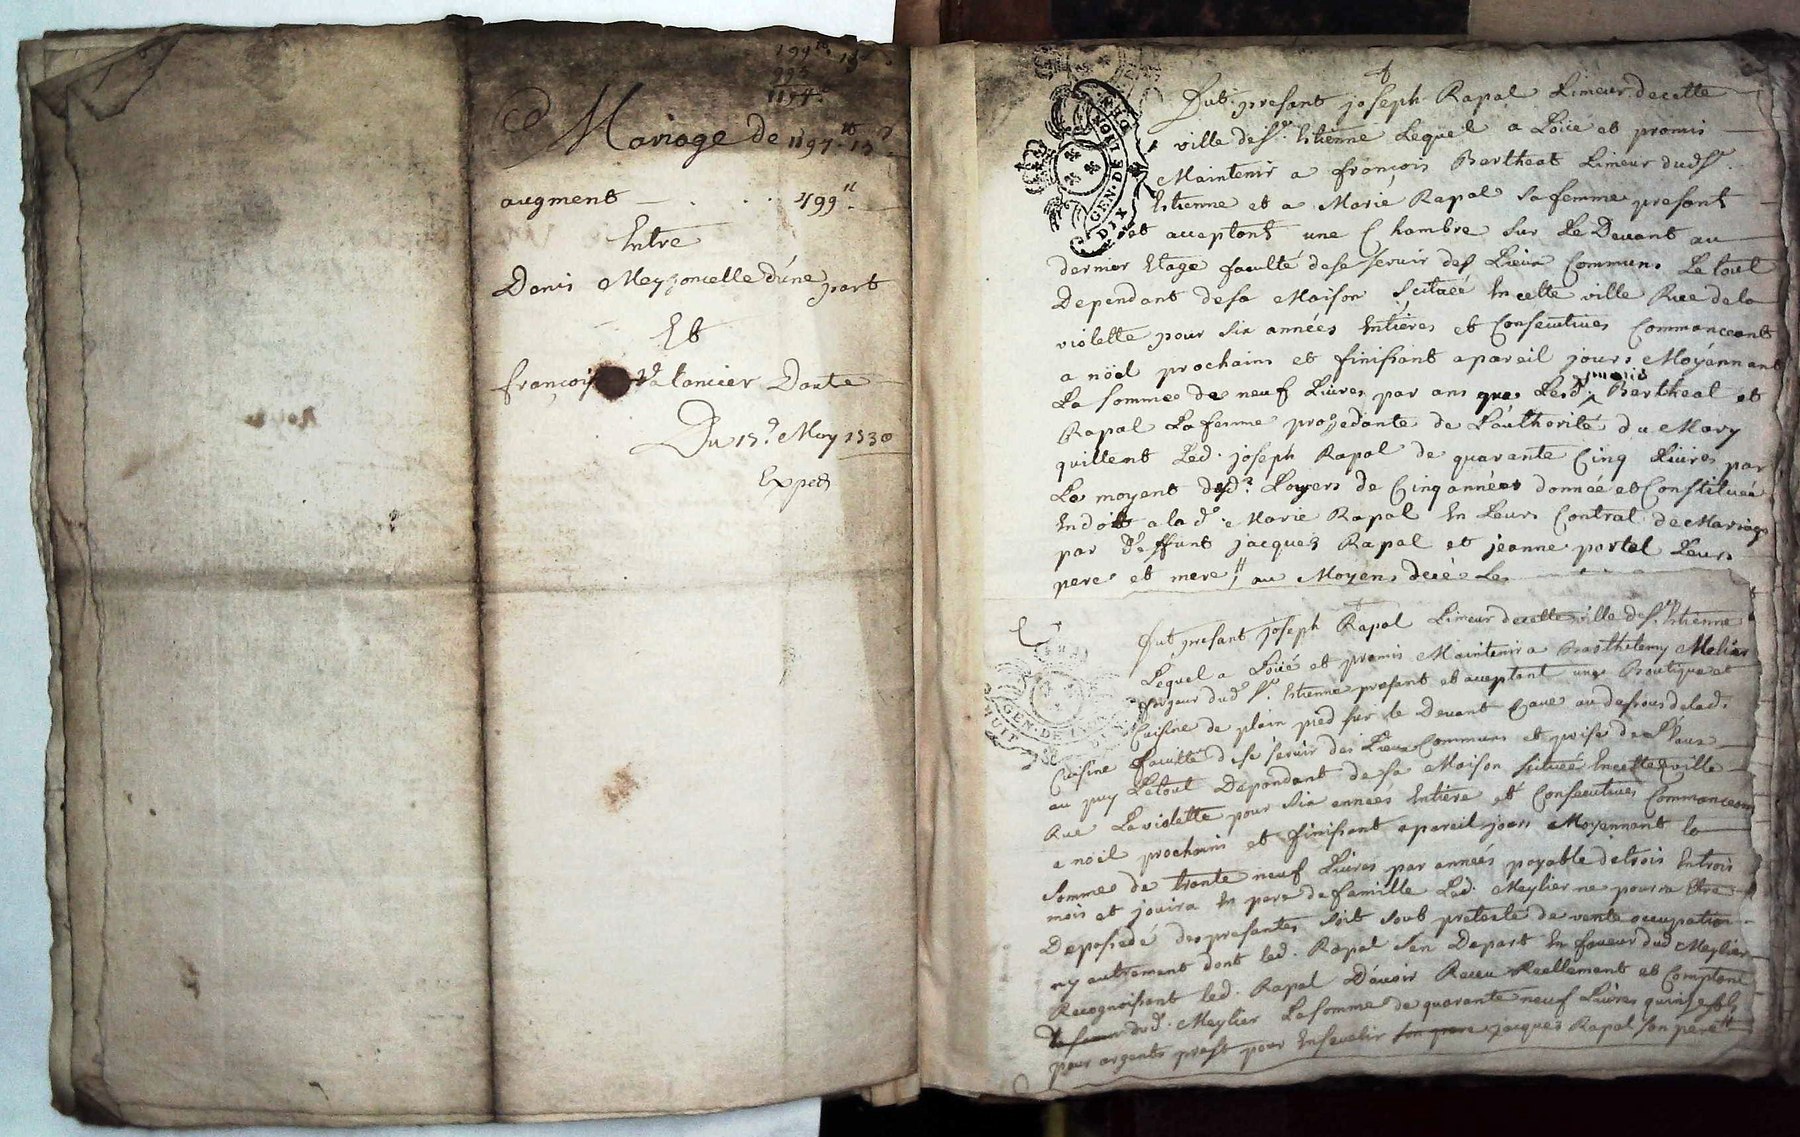 Mariage de 1197 ᵗᵗ 15ˢ
augment — . . . 499ᵗᵗ
Entre
Denis Meyzoncelle d'une part
Et
françois Valancier Dautre
Du 15ᵉ May 1730
Exped
GEN. DE LION
DIX
fut presant joseph Rapal Limeur de cette
ville de Sᵗ Etienne Lequel a Loüé et promis
Maintenir a françois Bertheat Limeur dud Sᵗ
Etienne et a Marie Rapal sa femme presant
et acceptant une Chambre sur Le Devant au
dernier Etage faculté de se servir des Lieux Communs Le tout
Dependant de sa Maison scituée En cette ville Rue de la
violette pour six années Entieres et Consecutives Commanceant
a nöel prochain et finissant a pareil jours Moyennant
La somme de neuf Livres par ans que Lesd. mariés Bertheat et
Rapal La femme procedante de L'authorité du Mary
quittent Led. joseph Rapal de quarante Cinq Livres par
Le moyent desd. Loyers de Cinq années donnée et Constituée
En dott a lad. Marie Rapal En Leur Contrat de Mariage
par deffunt jacques Rapal et jeanne portal Leurs
pere et mere au Moyen de ce Les
GEN. DE LION
HUIT
fut presant joseph Rapal Limeur de cette ville de Sᵗ Etienne
Lequel a Loüé et promis Maintenir a Barthelemy Melier
forgeur dud Sᵗ Etienne presant et acceptant une Boutique et
Cuisine de plain pied sur le Devant Cave au dessous de lad.
Cuisine faculté de se servir des Lieux Communs et prise de L'eau
au puy Le tout Dependant de sa Maison scituée En cette ville
Rue La violette pour six années Entiere et Consecutives Commanceant
a nöel prochain et finissant a pareil jours Moyennant la
Somme de trante neuf Livres par années payable de trois En trois
mois et jouira En pere de famille Led. Meylier ne pourra Etre
Deposedé des presantes soit soub pretexte de vente occupation
ny autrement dont led. Rapal s'en Depart En faveur dud Meylier
Recognoissant led. Rapal D'avoir Receu Reellement et Comptant
dud. Meylier La somme de quarante neuf Livres quinze sols
pour argent prest pour Ensevelir son pere jacques Rapal son pere